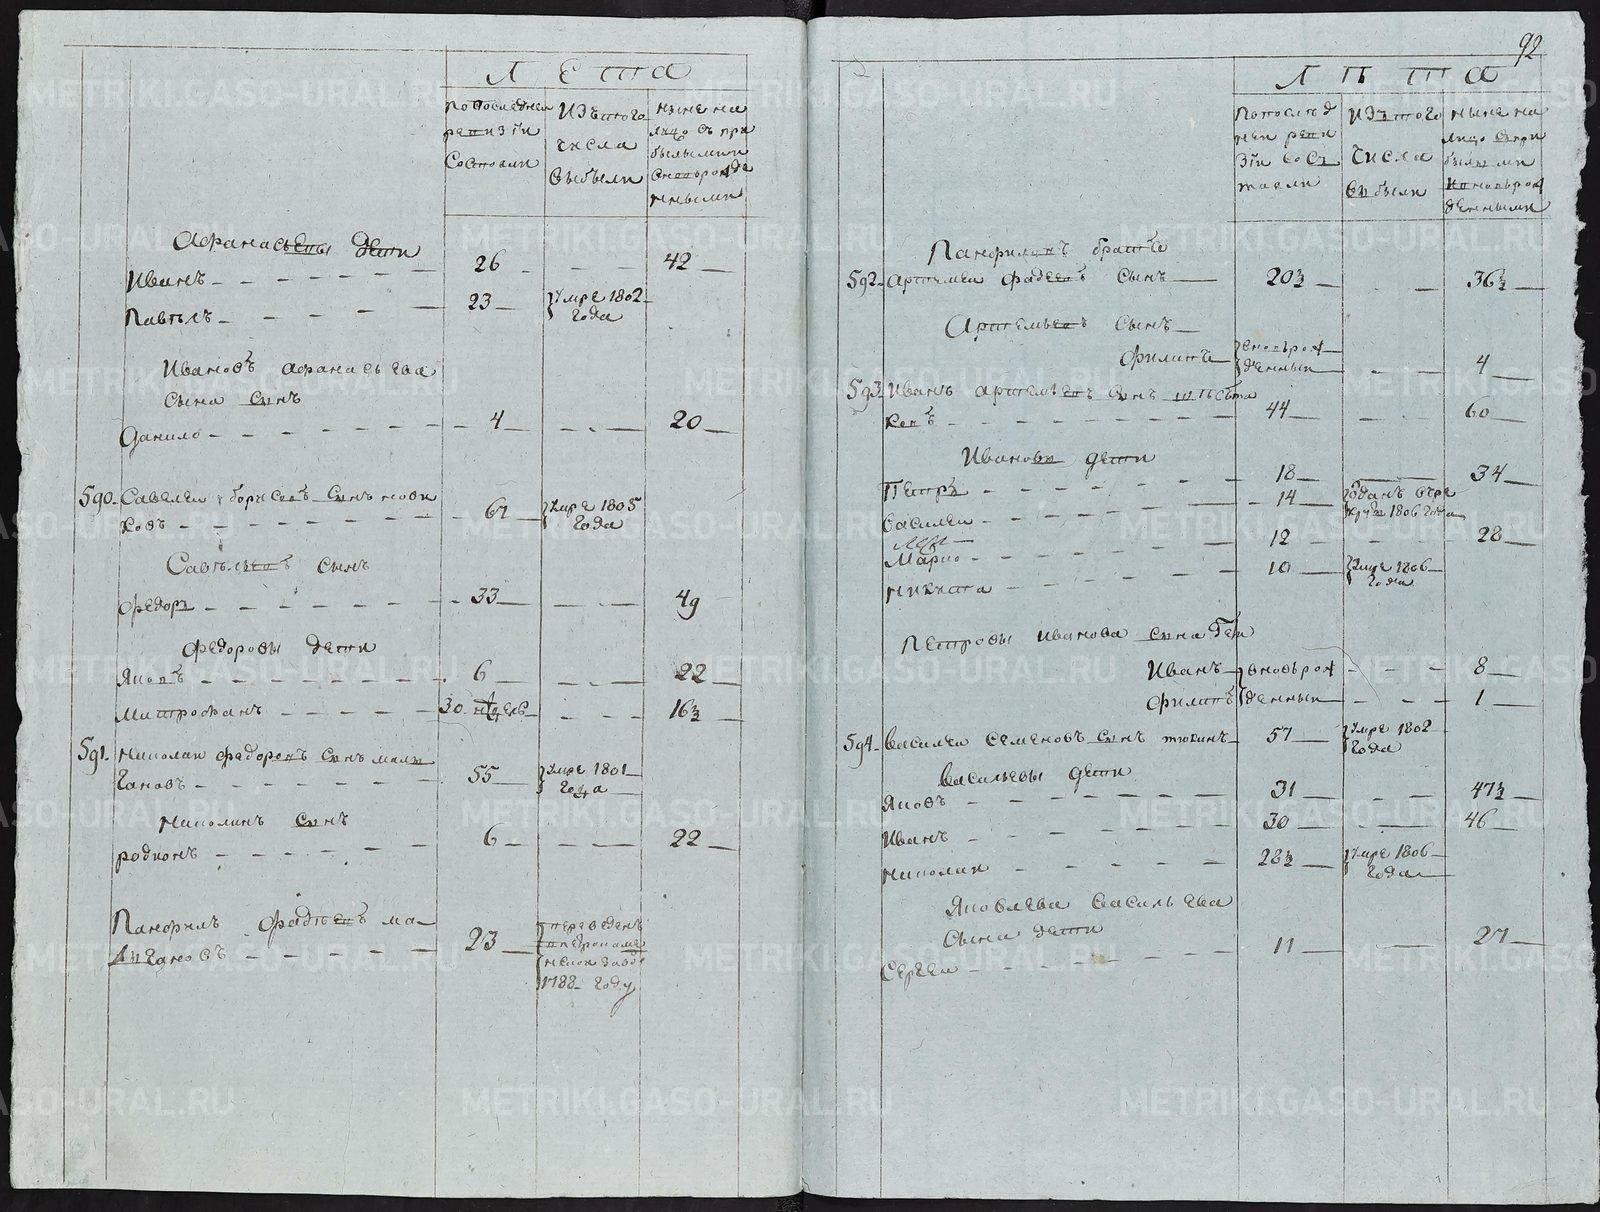 Лета
По последней
ревизіи
Состояли
Изъ того
числа
выбыли
ныне на
лицо съ при
былыми и
сновьрожде
нными
Афанасьевы дети
Иванъ 26 42
Павелъ 23 умре 1802
года
Ивановъ Афанасьева
сына сынъ
Данило 4 20
590. Савелеи борисовъ сынъ нови
ковъ 67 умре 1805
года
Савельевъ сынъ
Федоръ 33 49
Федоровы дети
Яковъ 6 22
Митрофанъ 30 недель 16½
591. Николаи Федоровъ сынъ малы
гановъ 55 умре 1801
года
Николинъ сынъ
родионъ 6 22
Панфилъ Фадеевъ ма
лыгановъ 23 переведенъ
1788 году
92
Лѣта
По послед
неи реви
зіи сост
таяли
Изъ того
числа
выбыли
ныне на
лицо съ при
былыми
и новьрож
денными
Панфиловъ братъ
592. Артемеи Фадеевъ сынъ 20½ 36½
Артемьевъ сынъ
Филипъ сновьрож
денныи 4
593. Иванъ Артемьевъ сынъ
ковъ 44 60
Ивановы дети
Петръ 18 34
Василеи 14 Отданъ въре
круты 1806 года
Марко 12 28
Никита 10 умре 1806
года
Петровы Иванова сына дети
Иванъ сновьрож 8
Филипъ денныи 1
594. Василеи Семеновъ сынъ тюкинъ 57 умре 1802
года
Васильевы дети
Яковъ 31 47½
Иванъ 30 46
Николаи 28½ умре 1806
года
Яковлева Васильева
сына дети
Сергеи 11 27
METRIKI.GASO-URAL.RU